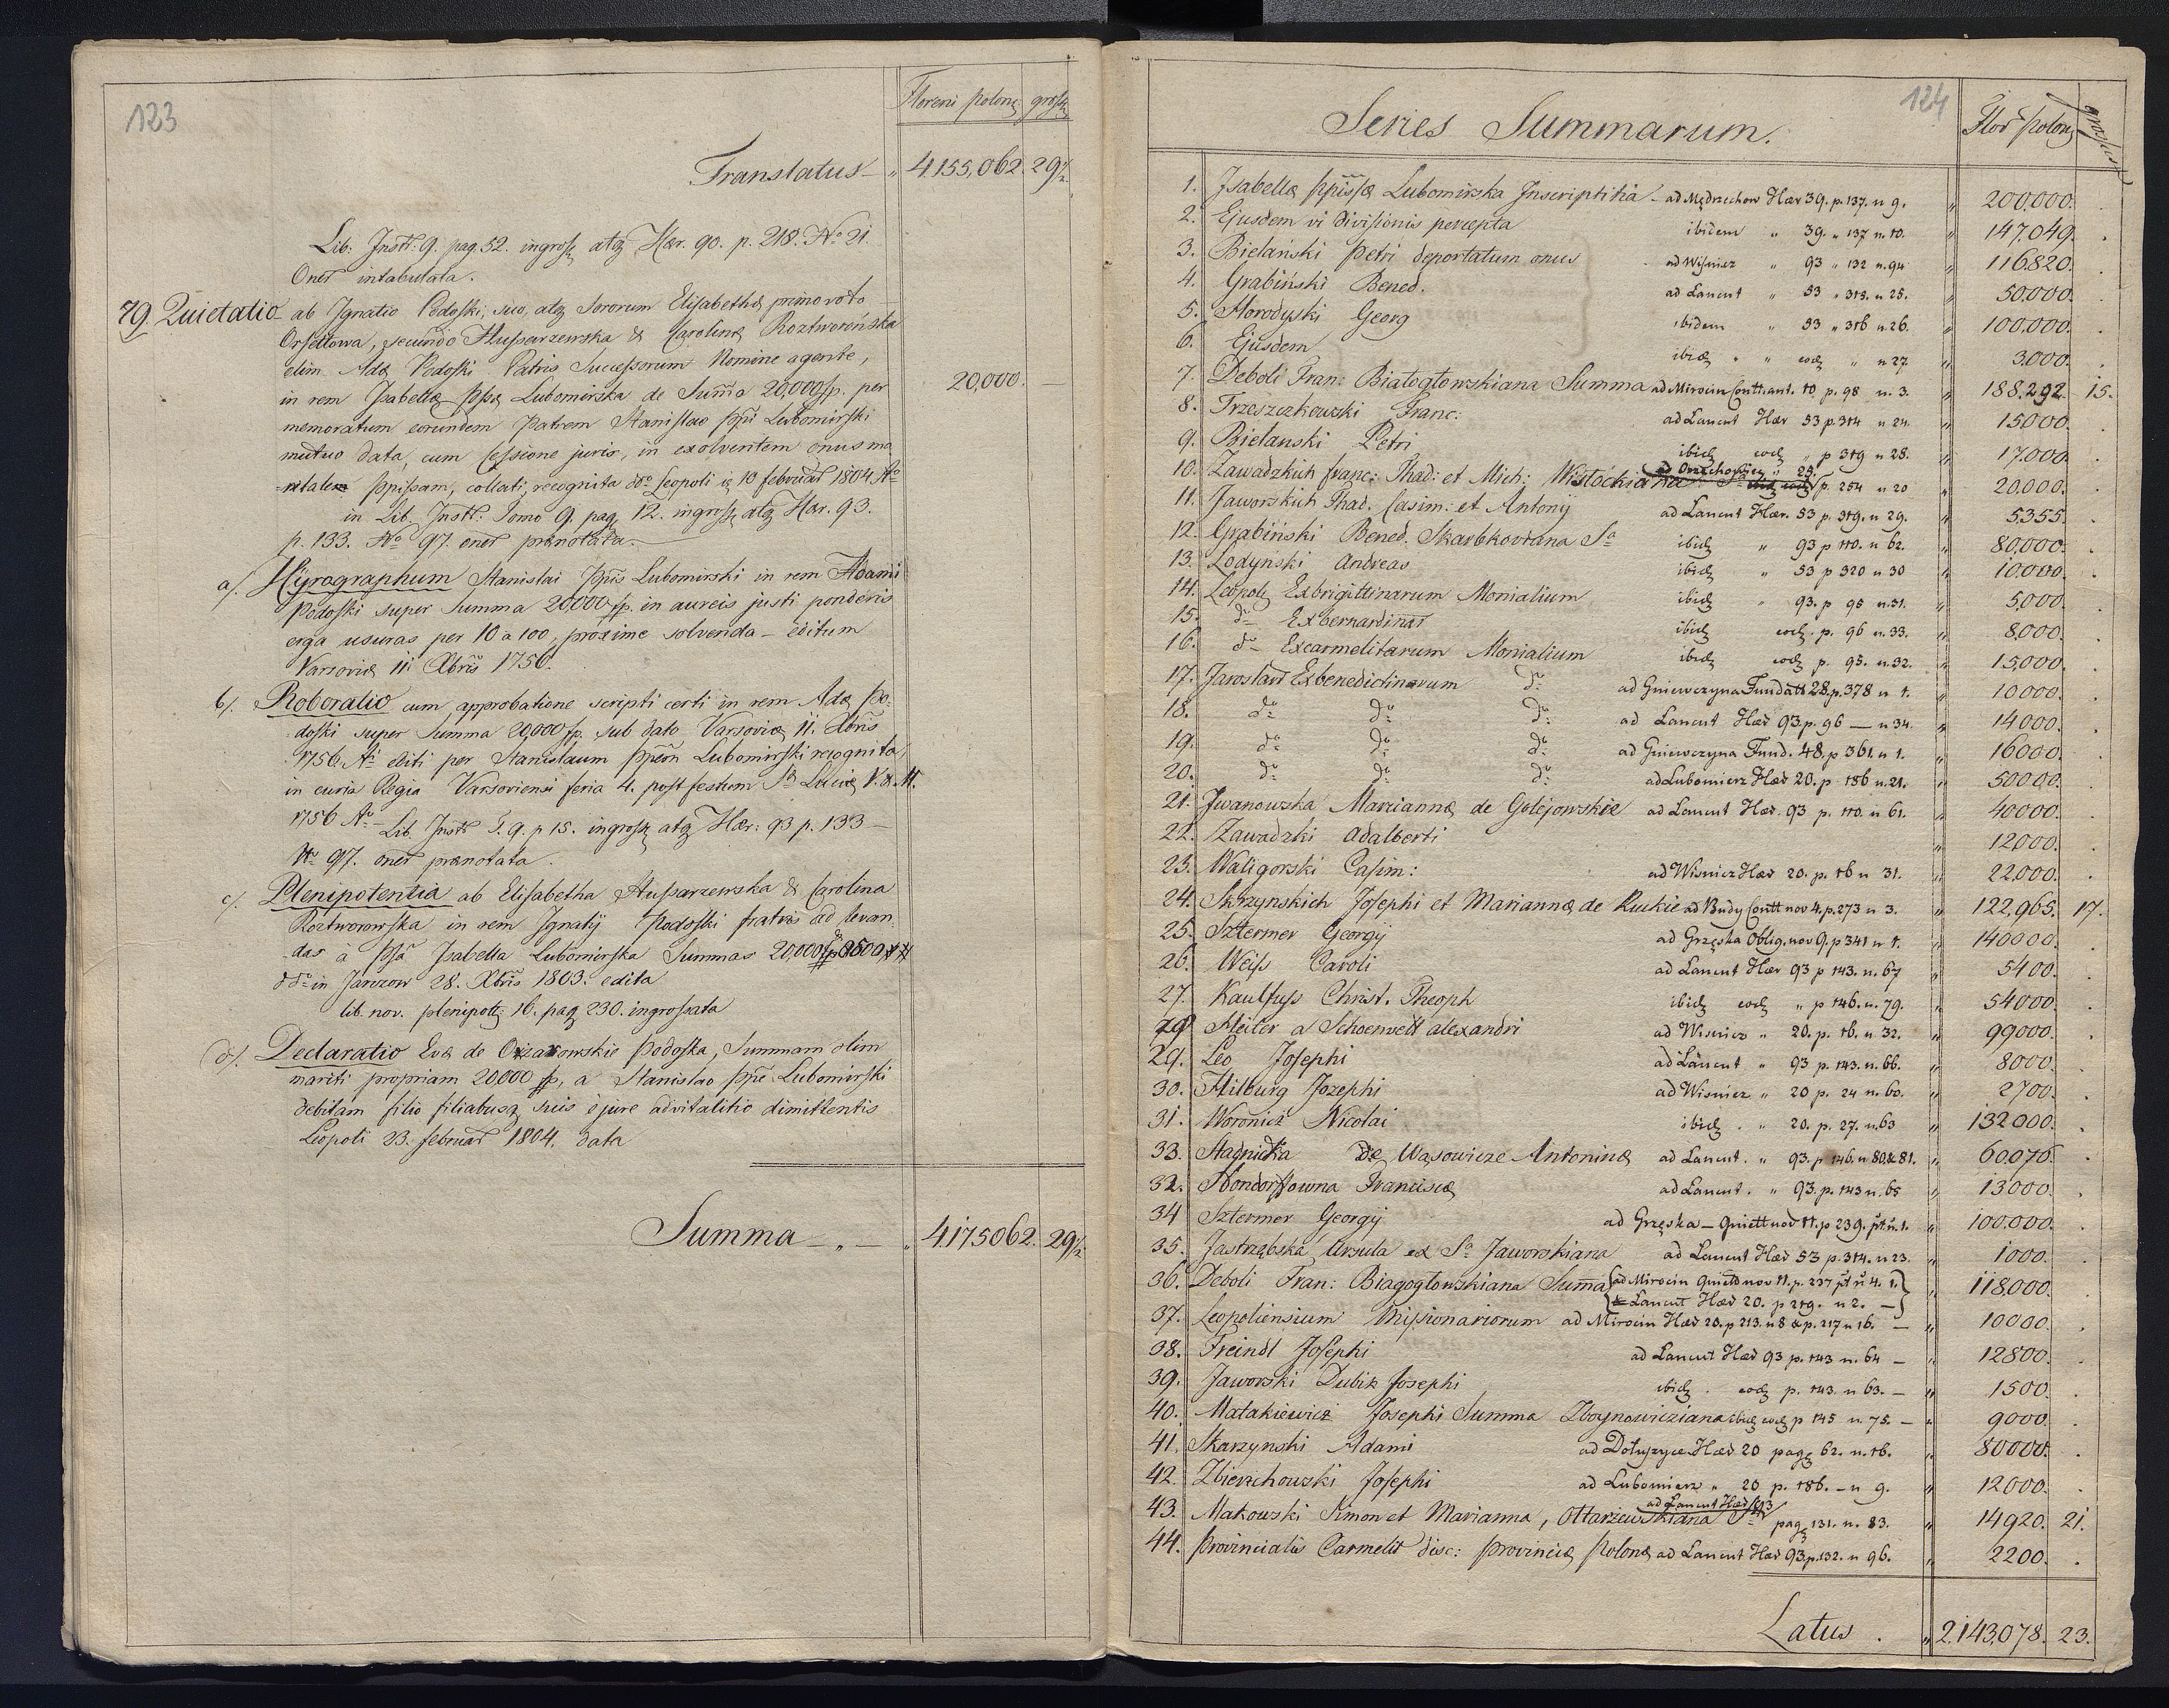 123
Floreni polonę grosz
Translatus — „ 4.155,062. 29½
Lib. Instr. 9. pag 52. ingross atq Hær. 90. p. 218. No 21.
Oner intabulata.
79. Quietatio ab Ignatio Podoski, suo, atq Sororum Elisabethæ primo voto
Orsettowa, secundo Hussarzewska & Carolinæ Roztworowska
olim Adæ Podoski Patris Successorum Nomine agente,
in rem Isabellæ Ppsæ Lubomirska de Summa 20,000 fp. per 20,000. —
memoratum eorundem Patrem Stanislao Ppi Lubomirski
mutuo data, cum Cessione juris, in exolventem onus ma
ritalem Ppissam, collati, recognita dto Leopoli 10 februar 1804 Ao
in Lib. Instr: Tomo 9. pag 12. ingross atq Hær. 93.
p. 133. No 97. oner prænotata.
a/. Hÿrographum Stanislai Ppis Lubomirski in rem Adami
Podoski super Summa 20000 fp. in aureis justi ponderis
erga usuras per 10 a 100, proxime solvenda — editum
Varsoviæ 11 Xbris 1756.
b/. Roboratio cum approbatione scripti certi in rem Adæ Po-
doski super Summa 20,000 fp. sub dato Varsoviæ 11. Xbris
1756 Ao editi per Stanislaum Ppem Lubomirski recognita,
in curia Regia Varsoviensi feria 4. post festum S. Luciæ V. & M.
1756 Ao — Lib. Instr T. 9. p 15. ingross atq Hær: 93 p. 133 —
No 97. oner prænotata.
c/. Plenipotentia ab Elisabetha Hussarzewska & Carolina
Roztworowska in rem Ignatÿ Podoski fratris ad levan
das à Ppsa Isabella Lubomirska Summas 20,000 fp
dto in Jarczow 28. Xbris 1803. edita
lib. nov. plenipott. 16. pag 230. ingrossata
d/. Declaratio Evæ de Ożarowskie Podoska, Summam olim
mariti propriam 20,000 fp, a Stanislao Ppe Lubomirski
debitam filio filiabusq suis è jure advitalitio dimittentis
Leopoli 23. februar 1804. data
Summa — „ — „ 4.175062. 29½
124
Series Summarum. Flor polon grossen
1. Isabellæ Ppissæ Lubomirska Inscriptitia — ad Mędrzechow Hær 39. p. 137. n 9. „ 200.000.
2. Ejusdem vi divisionis percepta ibidem „ 39. „ 137 n. 10. „ 147.049.
3. Bielański Petri deportatum onus ad Wisnicz „ 93 „ 132 n. 94 „ 116820.
4. Grabiński Bened. ad Lancut „ 53 „ 315. n 25. „ 50.000.
5. Horodyski Georg ibidem „ 53 „ 316 n 26. „ 100.000.
6. Ejusdem ibid „ „ eod „ n 27. „ 3.000.
7. Deboli Fran: Białogłowskiana Summa ad Mirocin Contr. ant. 10 p. 98 n. 3. „ 188.292. 15.
8. Trzeszczkowski Franc: ad Lancut Hær 53 p. 314 n 24. „ 15000.
9. Bielanski Petri ibid eod „ p 319 n 28. „ 17.000.
10. Zawadzkich franc: Thad: et Mich: Wisłockiana Sa ad Orzechowice „ 25. p. 254 n 20 „ 20.000.
11. Jaworskich Thad. Casim: et Antonÿ ad Lancut Hær. 53 p. 319. n 29. „ 5.355.
12. Grabiński Bened. Skarbkoviana Sa ibid „ 93 p 110. n 62. „ 80,000.
13. Lodyński Andreas ibid „ 53 p 320 n 30 „ 10.000.
14. Leopol Exbrigittinarum Monialium ibid „ 93. p 95 n. 31. „ 5,000.
15. do Exbernardinar ibid eod. p. 96 n. 33. „ 8,000.
16. do Excarmelitarum Monialium ibid eod p. 95. n. 32. „ 15,000.
17. Jaroslav Exbenedictinarum do ad Gniewczyna Fundatt 28. p. 378 n 1. „ 10000.
18. do do do ad Lancut Hær 93 p. 96 — n 34. „ 14000.
19. do do do ad Gniewczyna Fund. 48, p 361. n 1. „ 16000.
20. do do do ad Lubomierz Hær 20. p 186 n. 21. „ 50000.
21. Iwanowska Mariannæ de Golejowskie ad Lancut Hær. 93 p. 110. n 61. „ 40000.
22. Zawadzki Adalberti „ 12000.
23. Waligorski Casim: ad Wisnicz Hær 20. p. 16 n 31. „ 22.000.
24. Skrzynskich Josephi et Mariannæ de Ruckie ad Budy Contt nov 4. p. 273 n 3. „ 122,965. 17.
25. Sztermer Georgÿ ad Grzęska Oblig. nov 9. p 341 n 1. „ 140000.
26. Weiss Caroli ad Lancut Hær 93 p 143. n. 67 „ 5400.
27. Kaulfuss Christ. Theoph ibid eod „ p 146. n. 79. „ 54000.
28 Meiler a Schoenveld alexandri ad Wisnicz „ 20. p. 16. n 32. „ 99000.
29. Leo Josephi ad Lancut „ 93 p. 143. n. 66. „ 8000.
30. Hilburg Jozephi ad Wisnicz „ 20 p. 24 n. 60. „ 2700.
31. Woronicz Nicolai ibid . „ 20. p. 27. n. 63 „ 132000.
33. Stadnicka De Wąsowicze Antoninæ ad Lancut. „ 93. p 146. n 80. & 81. „ 60.070.
32. Kondorssowna Franciscæ ad Lancut. „ 93. p. 143 n. 65 „ 13000.
34 Sztermer Georgÿ ad Grzęska — Quiett nov 11. p 239. pt. n. 1. „ 100.000.
35. Jastrzębska Ursula ex Sa Jaworskiana ad Lancut Hær 53 p. 314. n 23. „ 1000.
36. Deboli Fran: Biagogłowskiana Summa {ad Mirocin Quiett nov 11. p. 237 pt n 4. 1.} „ 118,000.
{& Lancut Hær 20. p 219. n 2. —}
37. Leopoliensium Missionariorum ad Mirocin Hær 20. p 213. n 8 & p. 217 n 16. — „ 10000.
38. Freindl Josephi ad Lancut Hær 93 p. 143 n. 64 — „ 12800.
39. Jaworski Dubik Josephi ibid . eod p. 143. n 63. — „ 1500.
40. Matakiewicz Josephi Summa Zboynowicziana ibid eod p 145 n. 75. — „ 9000.
41. Skarzynski Adami ad Dołuszyce Hær. 20 pag 62. n. 16. „ 80000.
42. Zbierzchowski Josephi ad Lubomierz „ 20 p. 186. — n 9. „ 12000.
43. Makowski Simon et Marianna, Ottarzewskiana Sa ad Lancut Hær 93 pag 131. n. 83. „ 14920. 21.
44. Provincialis Carmelit disc: provinciæ Polonæ ad Lancut Hær 93. p. 132. n 96. „ 2200.
Latus . „ 2.143,078. 23.